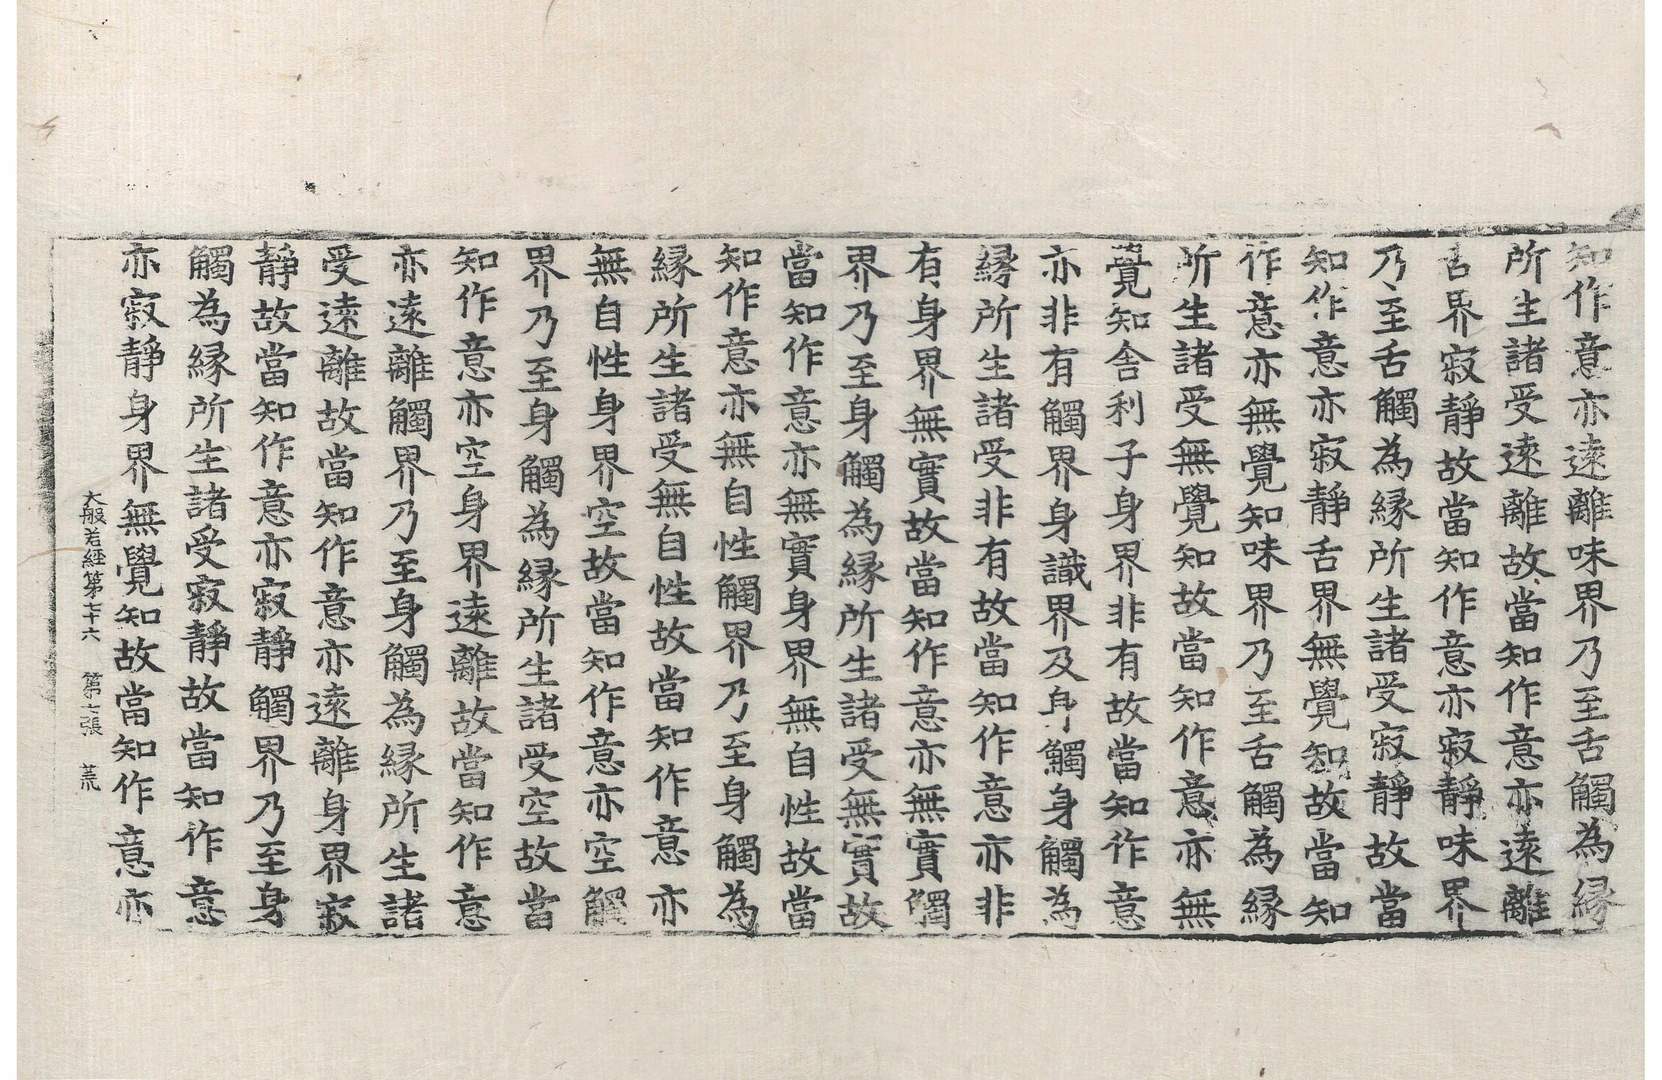 知作意亦遠離味界乃至舌觸為縁
所生諸受遠離故當知作意亦遠離
舌界寂靜故當知作意亦寂靜味界
乃至舌觸為縁所生諸受寂靜故當
知作意亦寂靜舌界無覺知故當知
作意亦無覺知味界乃至舌觸為縁
所生諸受無覺知故當知作意亦無
覺知舍利子身界非有故當知作意
亦非有觸界身識界及身觸身觸為
縁所生諸受非有故當知作意亦非
有身界無實故當知作意亦無實觸
界乃至身觸為縁所生諸受無實故
當知作意亦無實身界無自性故當
知作意亦無自性觸界乃至身觸為
縁所生諸受無自性故當知作意亦
無自性身界空故當知作意亦空觸
界乃至身觸為縁所生諸受空故當
知作意亦空身界遠離故當知作意
亦遠離觸界乃至身觸為縁所生諸
受遠離故當知作意亦遠離身界寂
靜故當知作意亦寂靜觸界乃至身
觸為縁所生諸受寂靜故當知作意
亦寂靜身界無覺知故當知作意亦
大般若經第七十六 第七張 荒